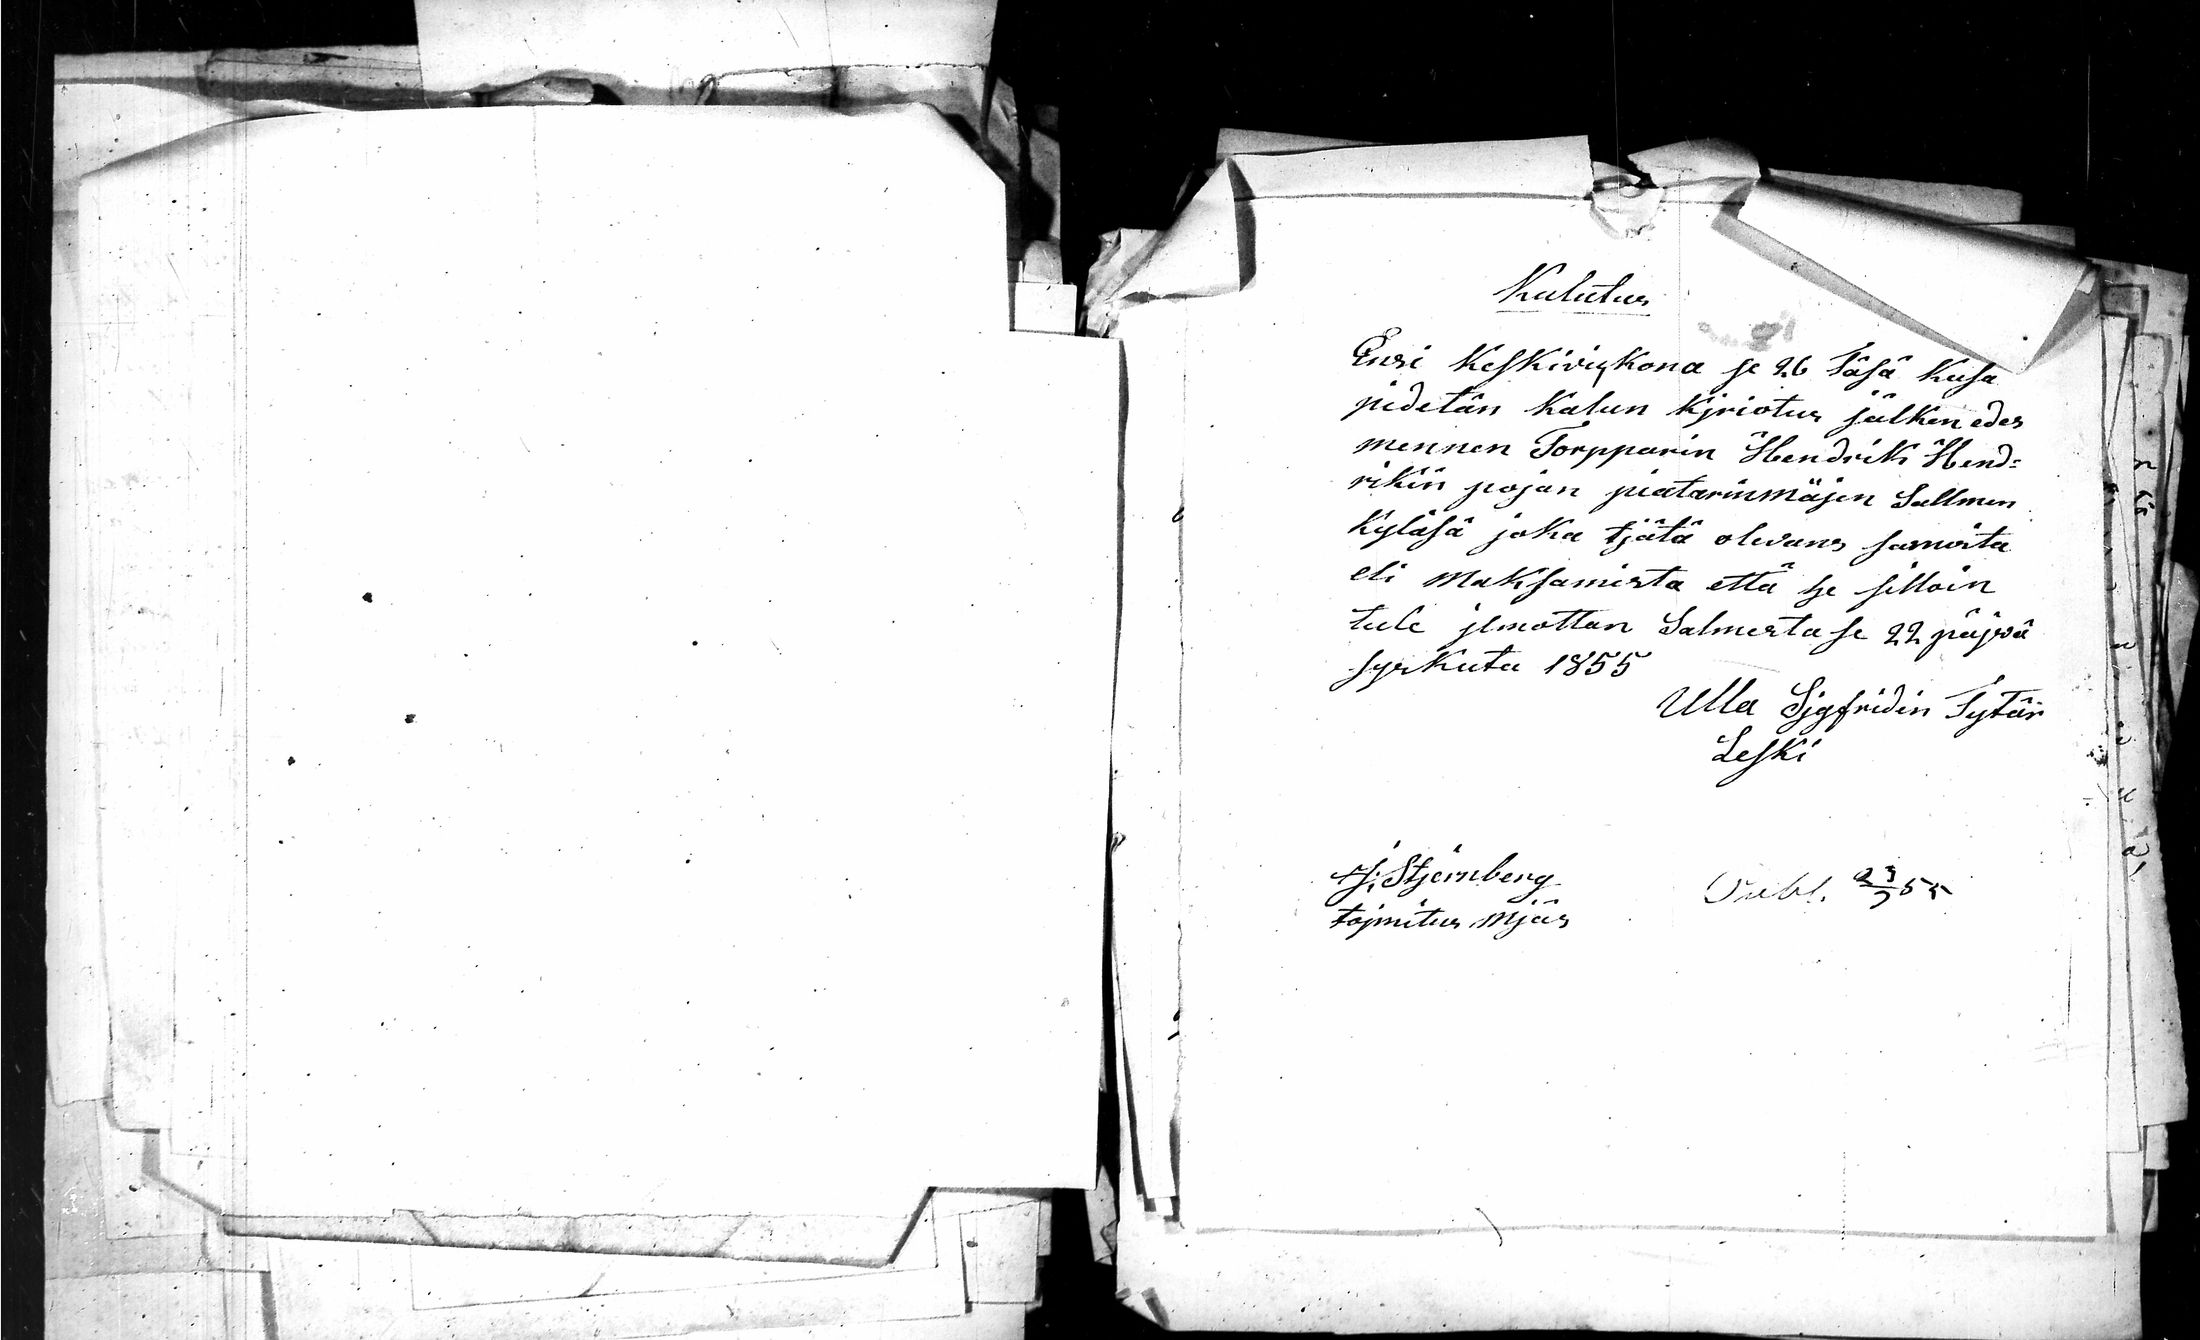 Kulutus
Ensi Keskiviykona se 26 Täsä Kusa
pidetän Kalun Kjriotus jälken edes
mennen Torpparin Hendrik Hend=
rikin pojan pietarinmäjen Sallmen
Kyläsä joka tjätä olevans samista
eli Maksamista että se silloin
tule jlmottan Salmesta se 22 päjvä
syskuta 1855
Ulla Sjgfridin Tytär
Leski
J; Stjernberg
tojmitus Mjäs
Publ. 23/9 55